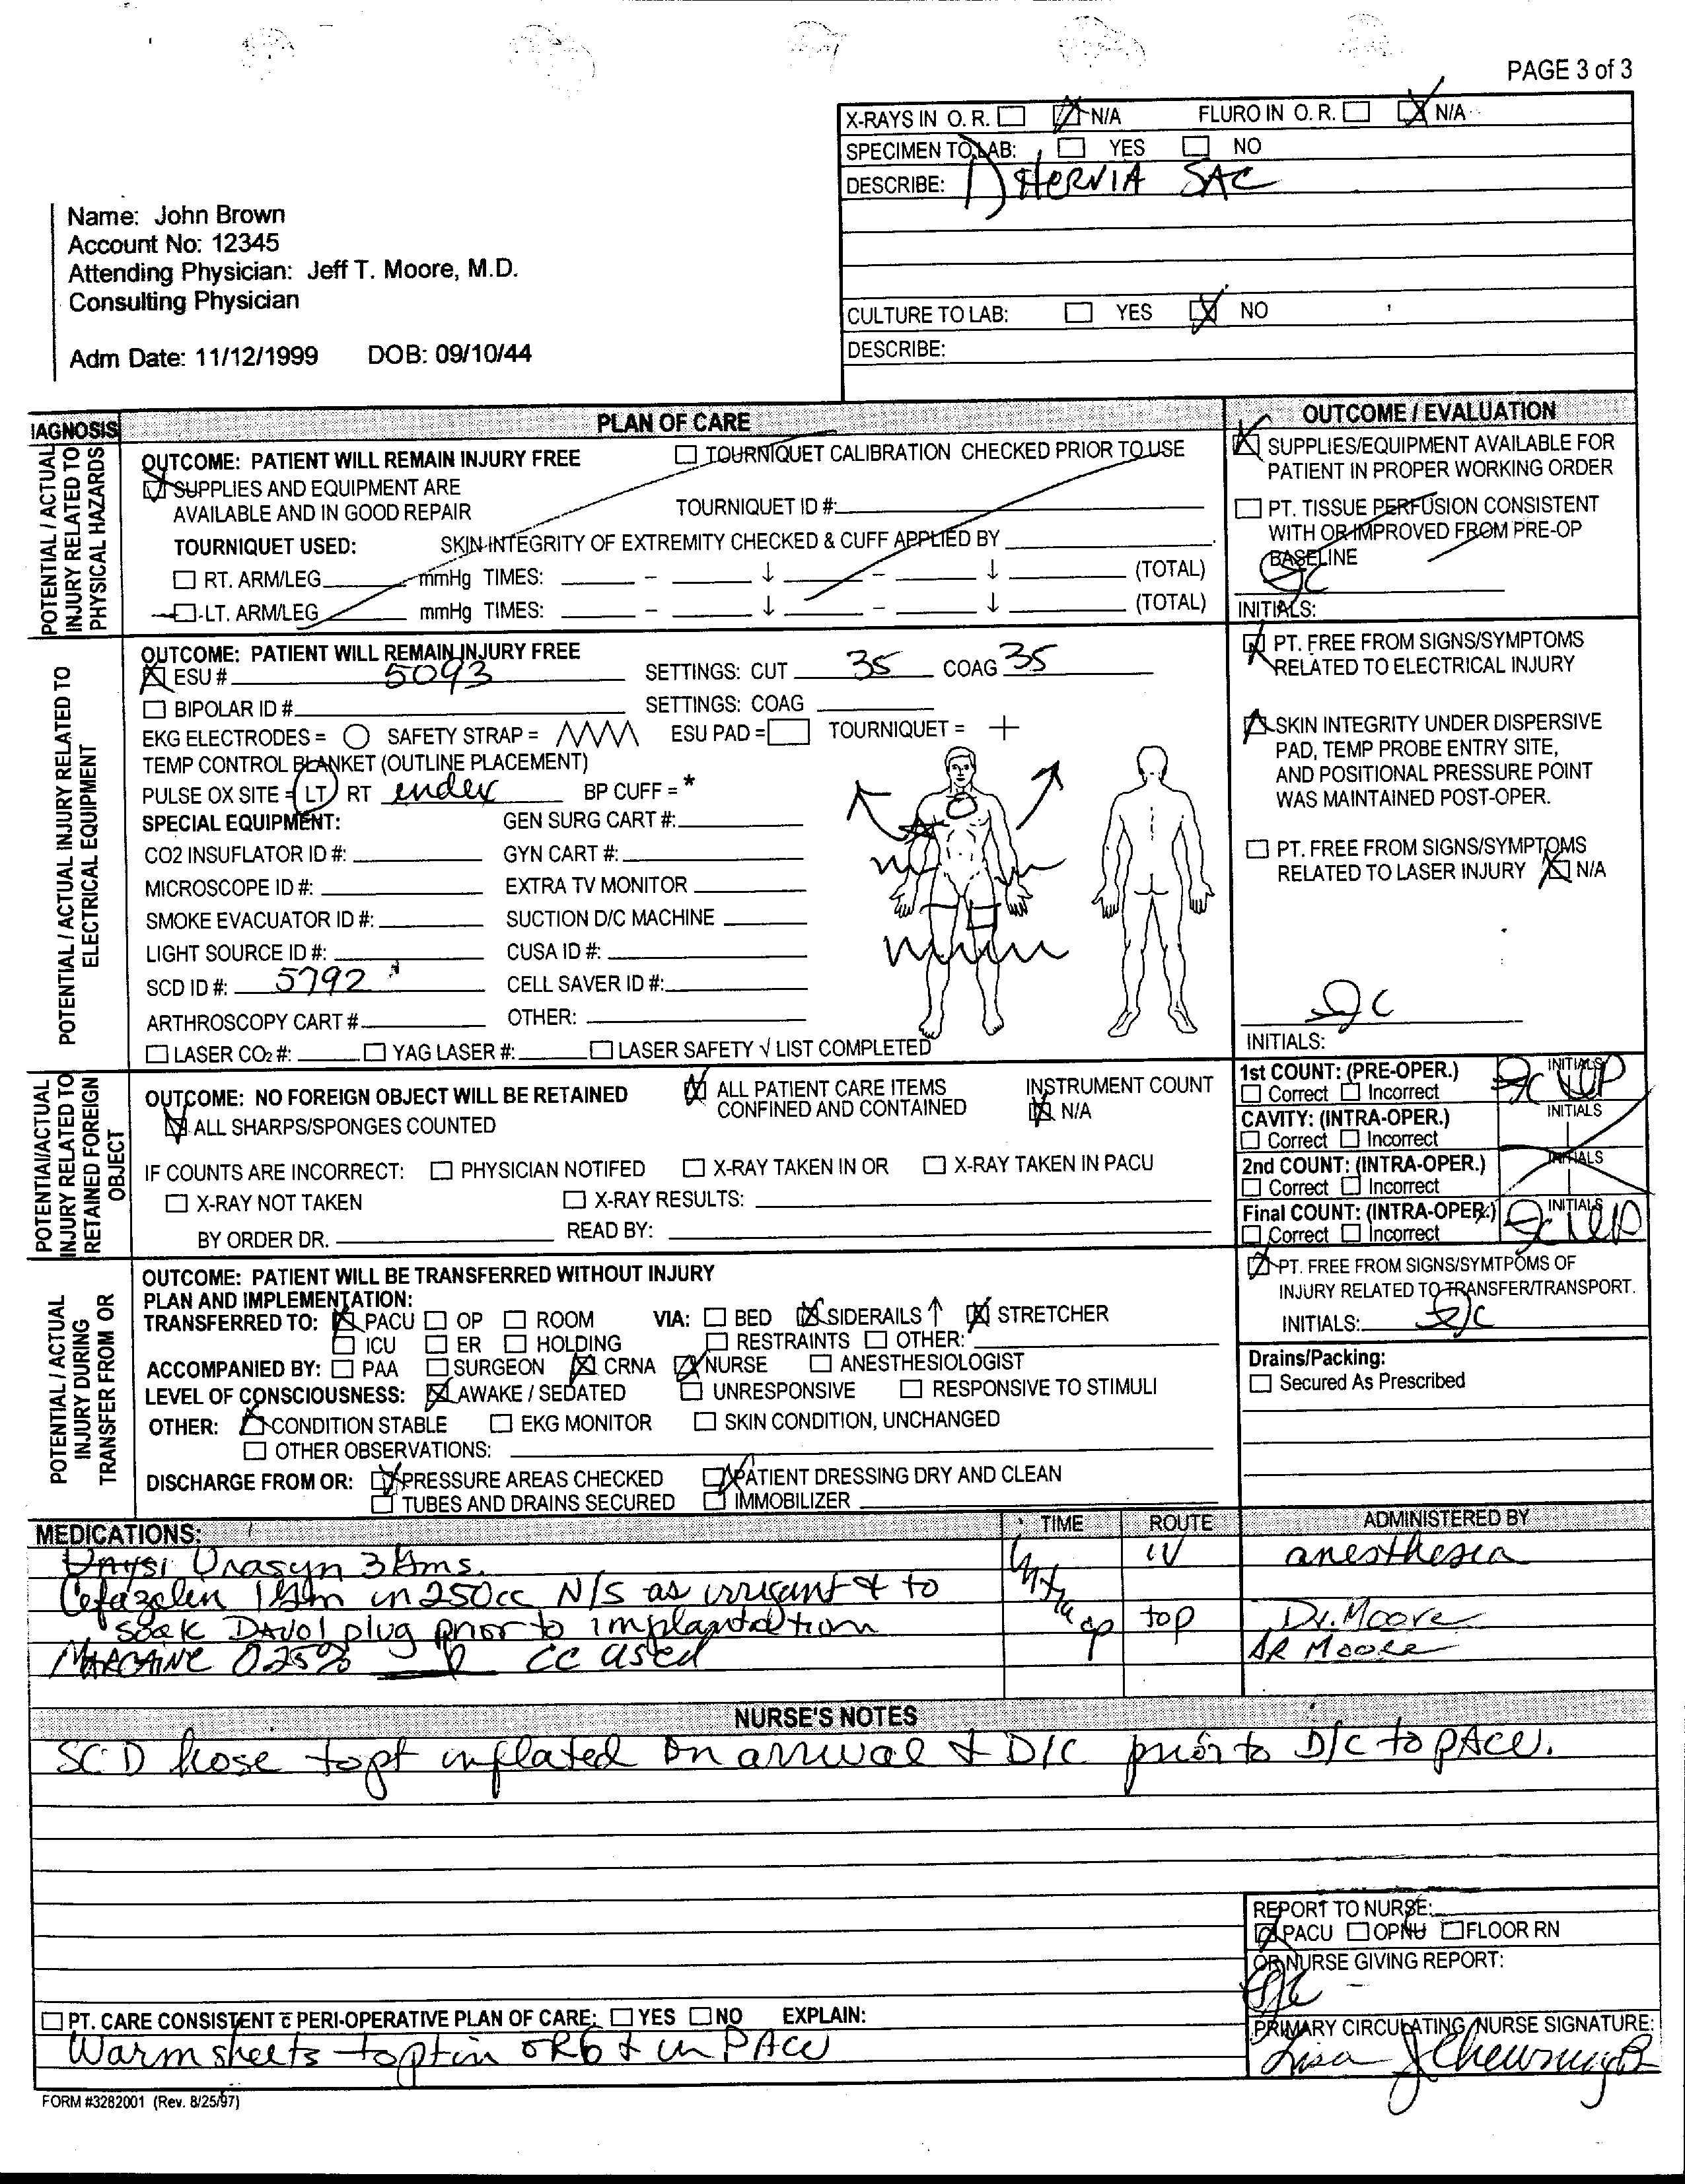 PAGE 3 of 3
X-RAYS IN O. R. N/A FLURO IN O. R. N/A
SPECIMEN TO LAB: YES NO
DESCRIBE: 1) HERNIA SAC
Name: John Brown
Account No: 12345
Attending Physician: Jeff T. Moore, M.D.
Consulting Physician
CULTURE TO LAB: YES NO
DESCRIBE:
Adm Date: 11/12/1999 DOB: 09/10/44
IAGNOSIS PLAN OF CARE OUTCOME / EVALUATION
POTENTIAL / ACTUAL INJURY RELATED TO PHYSICAL HAZARDS
OUTCOME: PATIENT WILL REMAIN INJURY FREE TOURNIQUET CALIBRATION CHECKED PRIOR TO USE
SUPPLIES AND EQUIPMENT ARE
AVAILABLE AND IN GOOD REPAIR TOURNIQUET ID #:
TOURNIQUET USED: SKIN INTEGRITY OF EXTREMITY CHECKED & CUFF APPLIED BY
RT. ARM/LEG mmHg TIMES: - ↓ - ↓ (TOTAL)
LT. ARM/LEG mmHg TIMES: - ↓ - ↓ (TOTAL)
SUPPLIES/EQUIPMENT AVAILABLE FOR
PATIENT IN PROPER WORKING ORDER
PT. TISSUE PERFUSION CONSISTENT
WITH OR IMPROVED FROM PRE-OP
BASELINE
INITIALS:
POTENTIAL / ACTUAL INJURY RELATED TO ELECTRICAL EQUIPMENT
OUTCOME: PATIENT WILL REMAIN INJURY FREE
ESU # 5093 SETTINGS: CUT 35 COAG 35
BIPOLAR ID # SETTINGS: COAG
EKG ELECTRODES = SAFETY STRAP = ESU PAD = TOURNIQUET = +
TEMP CONTROL BLANKET (OUTLINE PLACEMENT)
PULSE OX SITE = LT RT index BP CUFF = *
SPECIAL EQUIPMENT: GEN SURG CART #:
CO2 INSUFLATOR ID #: GYN CART #:
MICROSCOPE ID #: EXTRA TV MONITOR
SMOKE EVACUATOR ID #: SUCTION D/C MACHINE
LIGHT SOURCE ID #: CUSA ID #:
SCD ID #: 5792 CELL SAVER ID #:
ARTHROSCOPY CART # OTHER:
LASER CO2 #: YAG LASER #: LASER SAFETY √ LIST COMPLETED
PT. FREE FROM SIGNS/SYMPTOMS
RELATED TO ELECTRICAL INJURY
SKIN INTEGRITY UNDER DISPERSIVE
PAD, TEMP PROBE ENTRY SITE,
AND POSITIONAL PRESSURE POINT
WAS MAINTAINED POST-OPER.
PT. FREE FROM SIGNS/SYMPTOMS
RELATED TO LASER INJURY N/A
INITIALS:
POTENTIAl/ACTUAL INJURY RELATED TO RETAINED FOREIGN OBJECT
OUTCOME: NO FOREIGN OBJECT WILL BE RETAINED ALL PATIENT CARE ITEMS INSTRUMENT COUNT
CONFINED AND CONTAINED N/A
ALL SHARPS/SPONGES COUNTED
IF COUNTS ARE INCORRECT: PHYSICIAN NOTIFED X-RAY TAKEN IN OR X-RAY TAKEN IN PACU
X-RAY NOT TAKEN X-RAY RESULTS:
BY ORDER DR. READ BY:
1st COUNT: (PRE-OPER.) INITIALS
Correct Incorrect
CAVITY: (INTRA-OPER.) INITIALS
Correct Incorrect
2nd COUNT: (INTRA-OPER.) INITIALS
Correct Incorrect
Final COUNT: (INTRA-OPER.) INITIALS
Correct Incorrect
POTENTIAL / ACTUAL INJURY DURING TRANSFER FROM OR
OUTCOME: PATIENT WILL BE TRANSFERRED WITHOUT INJURY
PLAN AND IMPLEMENTATION:
TRANSFERRED TO: PACU OP ROOM VIA: BED SIDERAILS ↑ STRETCHER
ICU ER HOLDING RESTRAINTS OTHER:
ACCOMPANIED BY: PAA SURGEON CRNA NURSE ANESTHESIOLOGIST
LEVEL OF CONSCIOUSNESS: AWAKE / SEDATED UNRESPONSIVE RESPONSIVE TO STIMULI
OTHER: CONDITION STABLE EKG MONITOR SKIN CONDITION, UNCHANGED
OTHER OBSERVATIONS:
DISCHARGE FROM OR: PRESSURE AREAS CHECKED PATIENT DRESSING DRY AND CLEAN
TUBES AND DRAINS SECURED IMMOBILIZER
PT. FREE FROM SIGNS/SYMTPOMS OF
INJURY RELATED TO TRANSFER/TRANSPORT.
INITIALS:
Drains/Packing:
Secured As Prescribed
MEDICATIONS: TIME ROUTE ADMINISTERED BY
Unasyn 3 Gms. IV anesthesia
Cefazolin 1 Gm in 250cc N/S as irrigant & to Intra op
soak Davol plug prior to implantation top Dr. Moore
MARCAINE 0.25% cc used DR MOORE
NURSE'S NOTES
SCD hose to pt inflated on arrival & D/C prior to D/C to PACU.
REPORT TO NURSE:
PACU OPNU FLOOR RN
OR NURSE GIVING REPORT:
PT. CARE CONSISTENT c̄ PERI-OPERATIVE PLAN OF CARE: YES NO EXPLAIN:
Warm sheets to pt in OR6 & in PACU
PRIMARY CIRCULATING NURSE SIGNATURE:
Lisa
FORM #3282001 (Rev. 8/25/97)